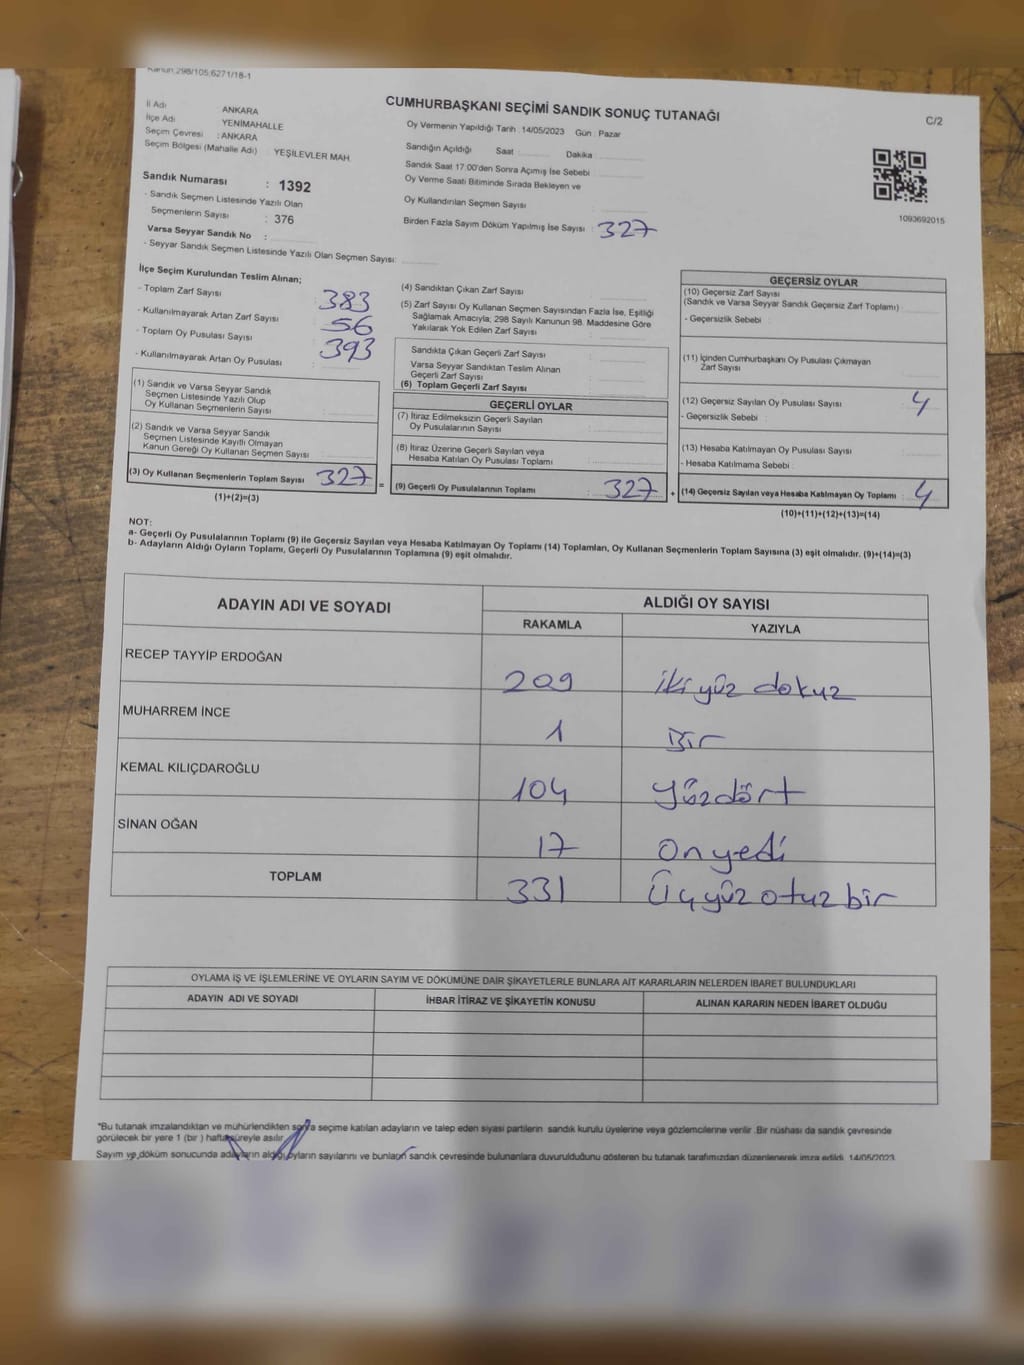 Kanun:298/105,6271/18-1
CUMHURBAŞKANI SEÇİMİ SANDIK SONUÇ TUTANAĞI
C/2
İl Adı ANKARA
İlçe Adı YENİMAHALLE
Seçim Çevresi : ANKARA
Seçim Bölgesi (Mahalle Adı) : YEŞİLEVLER MAH.
Sandık Numarası : 1392
- Sandık Seçmen Listesinde Yazılı Olan
Seçmenlerin Sayısı : 376
Varsa Seyyar Sandık No :
- Seyyar Sandık Seçmen Listesinde Yazılı Olan Seçmen Sayısı:
Oy Vermenin Yapıldığı Tarih :14/05/2023 Gün : Pazar
Sandığın Açıldığı Saat Dakika
Sandık Saat 17:00'den Sonra Açımış İse Sebebi
Oy Verme Saati Bitiminde Sırada Bekleyen ve
Oy Kullandırılan Seçmen Sayısı :
Birden Fazla Sayım Döküm Yapılmış İse Sayısı : 327
1093692015
İlçe Seçim Kurulundan Teslim Alınan;
- Toplam Zarf Sayısı : 383
- Kullanılmayarak Artan Zarf Sayısı : 56
- Toplam Oy Pusulası Sayısı : 393
- Kullanılmayarak Artan Oy Pusulası :
(1) Sandık ve Varsa Seyyar Sandık
Seçmen Listesinde Yazılı Olup
Oy Kullanan Seçmenlerin Sayısı :
(2) Sandık ve Varsa Seyyar Sandık
Seçmen Listesinde Kayıtlı Olmayan
Kanun Gereği Oy Kullanan Seçmen Sayısı :
(3) Oy Kullanan Seçmenlerin Toplam Sayısı : 327 =
(1)+(2)=(3)
(4) Sandıktan Çıkan Zarf Sayısı :
(5) Zarf Sayısı Oy Kullanan Seçmen Sayısından Fazla İse, Eşitliği
Sağlamak Amacıyla; 298 Sayılı Kanunun 98. Maddesine Göre
Yakılarak Yok Edilen Zarf Sayısı :
Sandıkta Çıkan Geçerli Zarf Sayısı :
Varsa Seyyar Sandıktan Teslim Alınan
Geçerli Zarf Sayısı :
(6) Toplam Geçerli Zarf Sayısı
GEÇERLİ OYLAR
(7) İtiraz Edilmeksizin Geçerli Sayılan
Oy Pusulalarının Sayısı :
(8) İtiraz Üzerine Geçerli Sayılan veya
Hesaba Katılan Oy Pusulası Toplamı :
(9) Geçerli Oy Pusulalarının Toplamı : 327 +
GEÇERSİZ OYLAR
(10) Geçersiz Zarf Sayısı
(Sandık ve Varsa Seyyar Sandık Geçersiz Zarf Toplamı) :
- Geçersizlik Sebebi :
(11) İçinden Cumhurbaşkanı Oy Pusulası Çıkmayan
Zarf Sayısı :
(12) Geçersiz Sayılan Oy Pusulası Sayısı : 4
- Geçersizlik Sebebi :
(13) Hesaba Katılmayan Oy Pusulası Sayısı :
- Hesaba Katılmama Sebebi :
(14) Geçersiz Sayılan veya Hesaba Katılmayan Oy Toplamı : 4
(10)+(11)+(12)+(13)=(14)
NOT:
a- Geçerli Oy Pusulalarının Toplamı (9) ile Geçersiz Sayılan veya Hesaba Katılmayan Oy Toplamı (14) Toplamları, Oy Kullanan Seçmenlerin Toplam Sayısına (3) eşit olmalıdır. (9)+(14)=(3)
b- Adayların Aldığı Oyların Toplamı, Geçerli Oy Pusulalarının Toplamına (9) eşit olmalıdır.
ADAYIN ADI VE SOYADI ALDIĞI OY SAYISI
RAKAMLA YAZIYLA
RECEP TAYYİP ERDOĞAN 209 iki yüz dokuz
MUHARREM İNCE 1 Bir
KEMAL KILIÇDAROĞLU 104 yüzdört
SİNAN OĞAN 17 on yedi
TOPLAM 331 Üçyüz otuz bir
OYLAMA İŞ VE İŞLEMLERİNE VE OYLARIN SAYIM VE DÖKÜMÜNE DAİR ŞİKAYETLERLE BUNLARA AİT KARARLARIN NELERDEN İBARET BULUNDUKLARI
ADAYIN ADI VE SOYADI İHBAR İTİRAZ VE ŞİKAYETİN KONUSU ALINAN KARARIN NEDEN İBARET OLDUĞU
*Bu tutanak imzalandıktan ve mühürlendikten sonra seçime katılan adayların ve talep eden siyasi partilerin sandık kurulu üyelerine veya gözlemcilerine verilir .Bir nüshası da sandık çevresinde
görülecek bir yere 1 (bir ) hafta süreyle asılır.
Sayım ve döküm sonucunda adayların aldığı oyların sayılarını ve bunların sandık çevresinde bulunanlara duyurulduğunu gösteren bu tutanak tarafımızdan düzenlenerek imza edildi. 14/05/2023